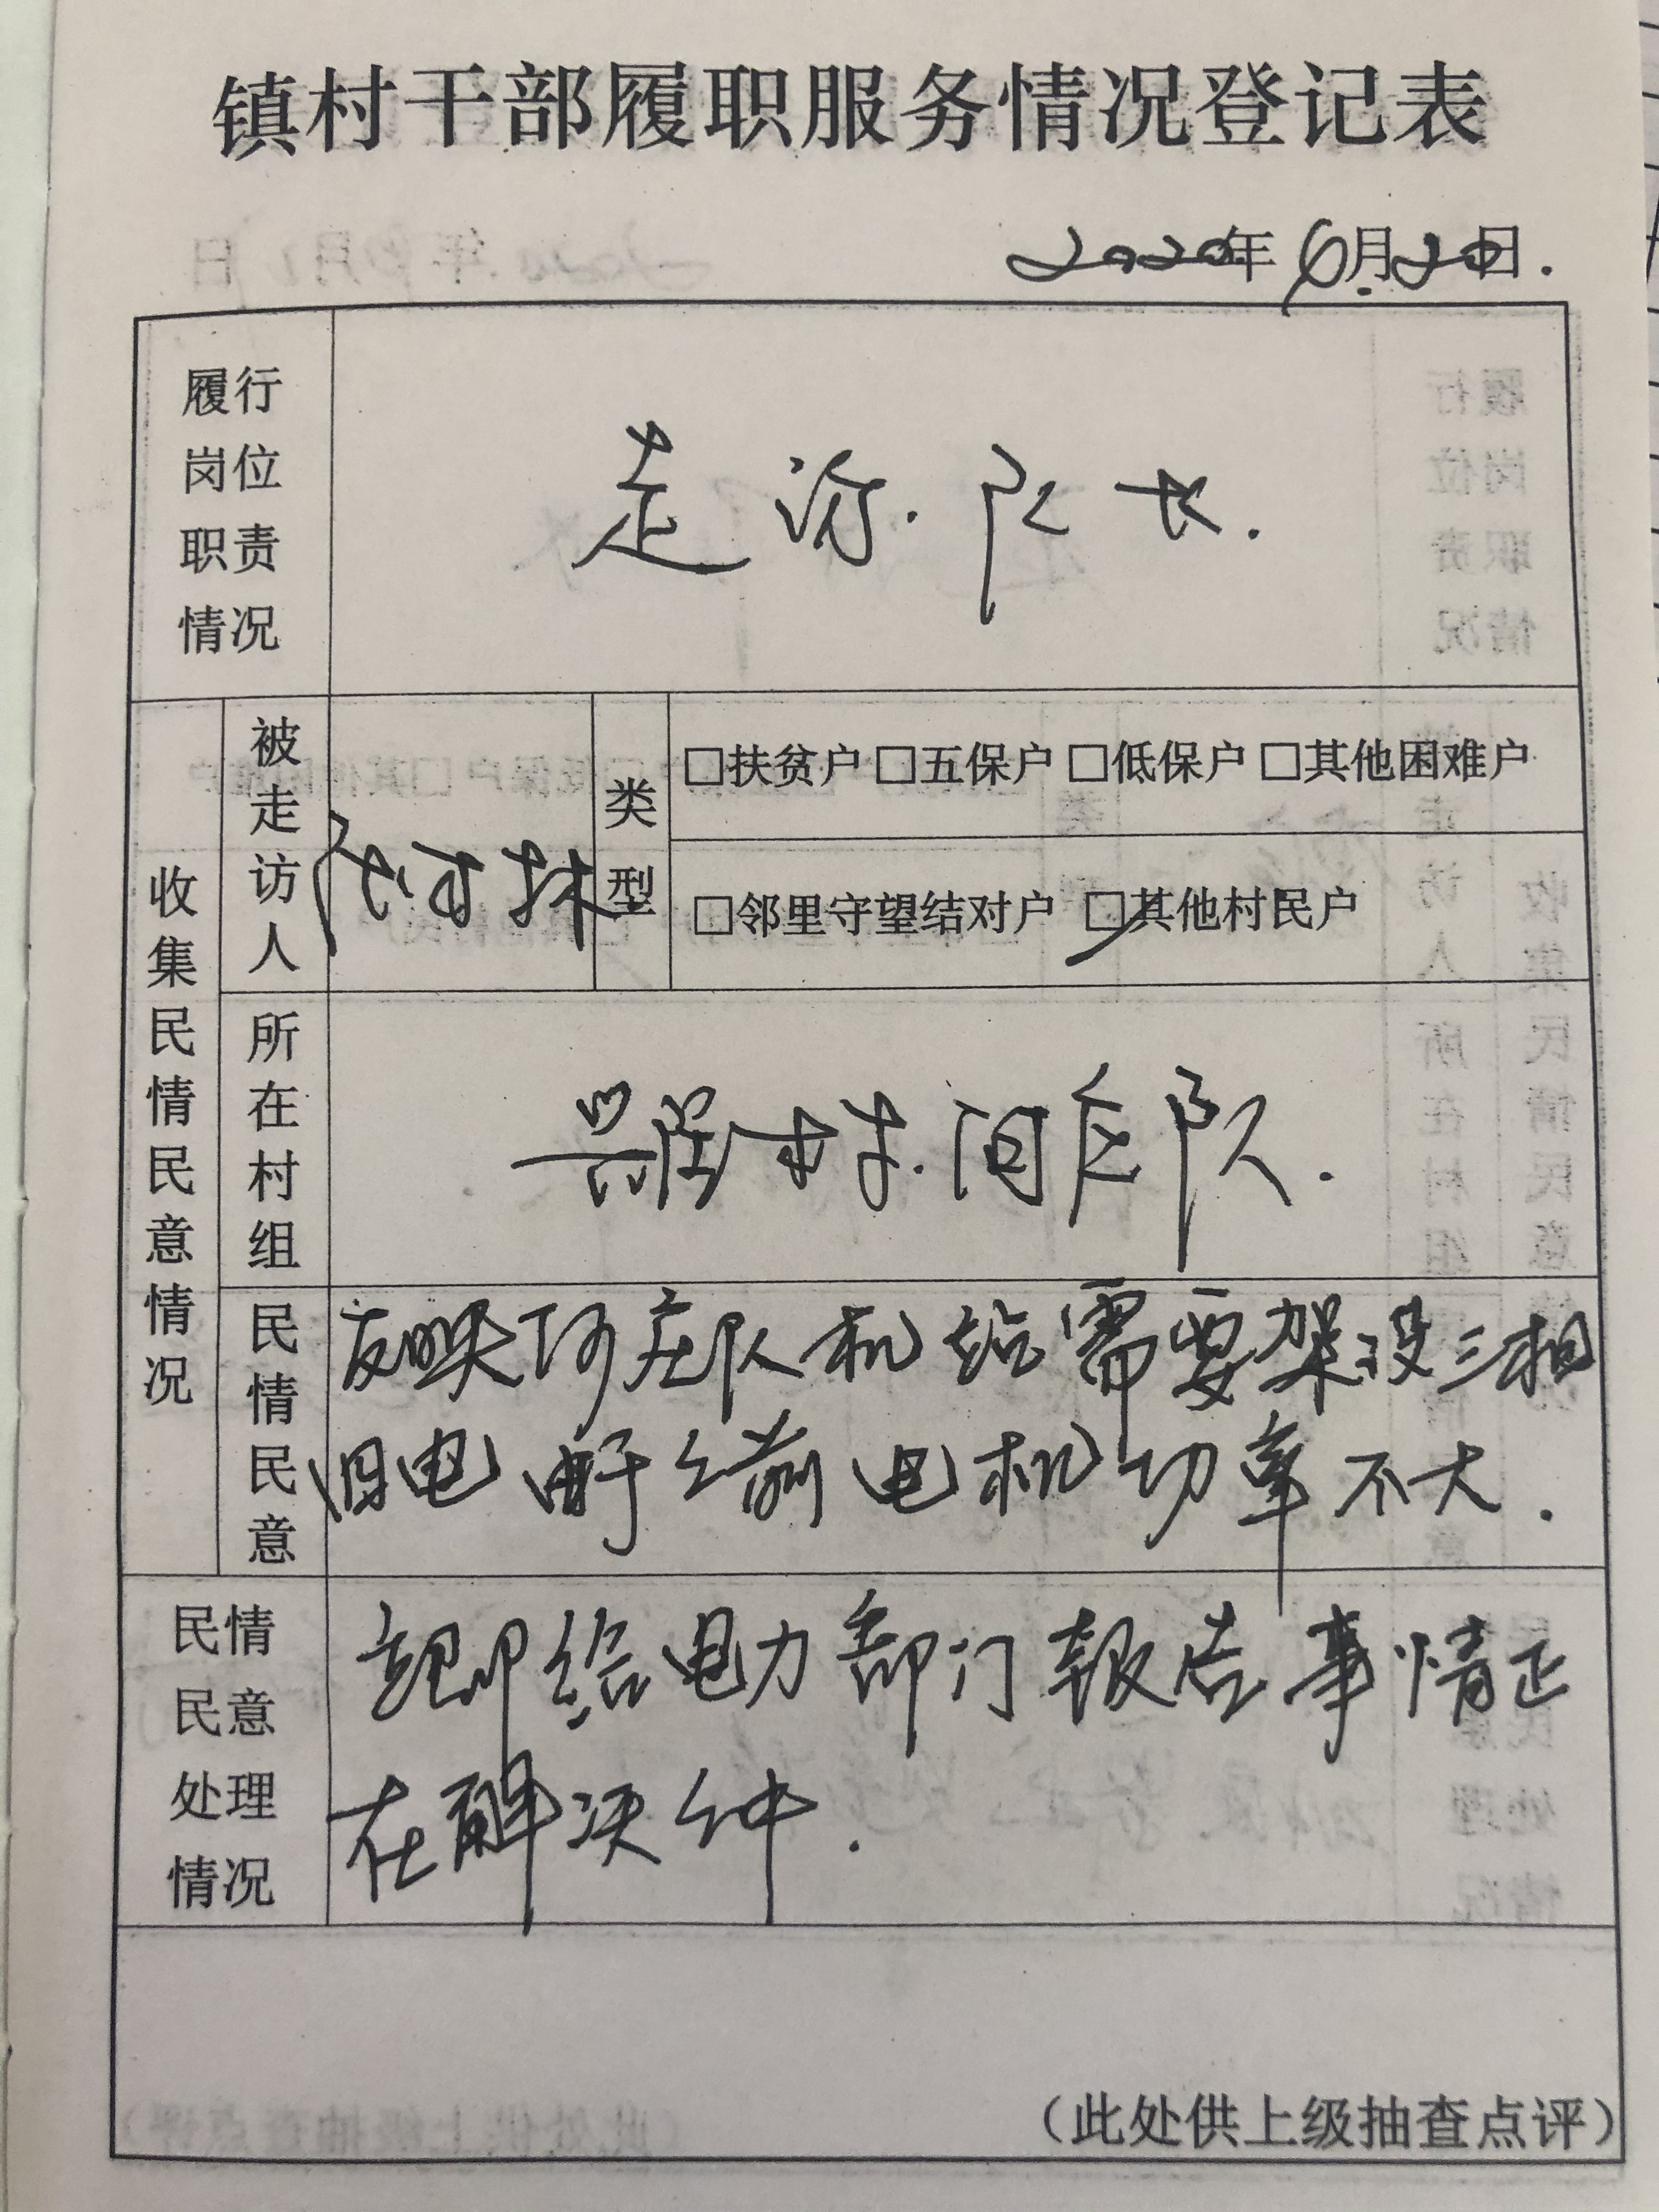 镇村干部履职服务情况登记表
2020年6月20日.
履行岗位职责情况
走访.队长.
收集民情民意情况
被走访人
类型
□扶贫户 □五保户 □低保户 □其他困难户
□邻里守望结对户 □其他村民户
所在村组
村.庄队.
民情民意
反映何庄队机站需要架设三相
电由于目前电机功率不大.
民情民意处理情况
立即给电力部门报告事情正
在解决中.
(此处供上级抽查点评)